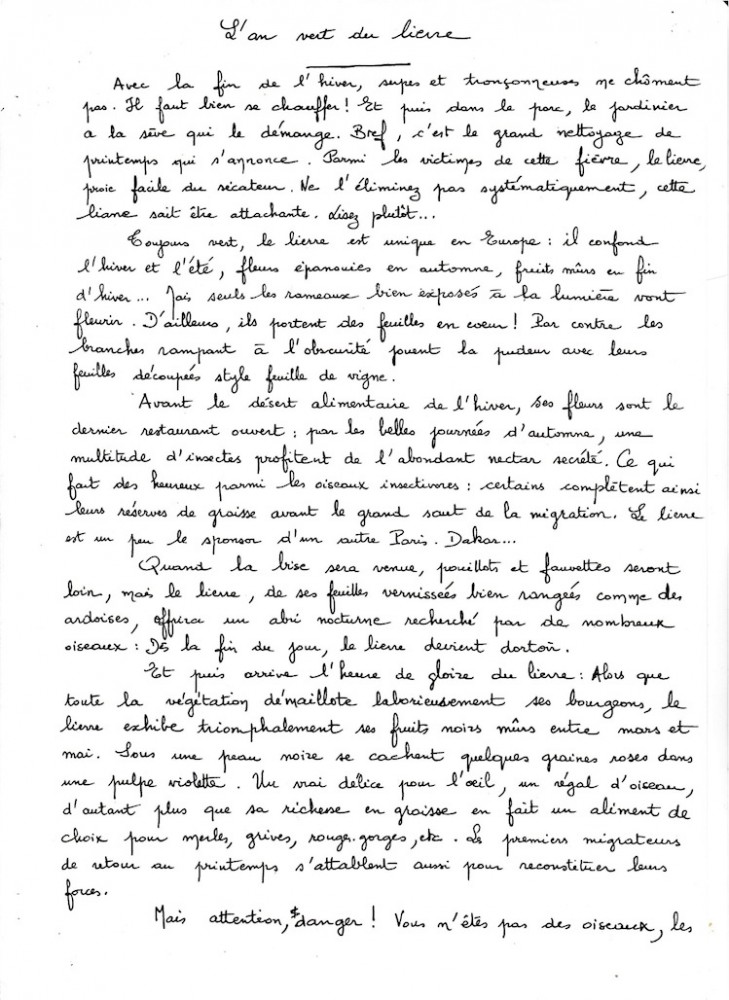 L'an vert du lierre
Avec la fin de l'hiver, serpes et tronçonneuses ne chôment
pas. Il faut bien se chauffer ! Et puis dans le parc, le jardinier
a la sève qui le démange. Bref, c'est le grand nettoyage de
printemps qui s'annonce. Parmi les victimes de cette fièvre, le lierre,
proie facile du sécateur. Ne l'éliminez pas systématiquement, cette
liane sait être attachante. Lisez plutôt...
Toujours vert, le lierre est unique en Europe : il confond
l'hiver et l'été, fleurs épanouies en automne, fruits mûrs en fin
d'hiver... Mais seuls les rameaux bien exposés à la lumière vont
fleurir. D'ailleurs, ils portent des feuilles en coeur ! Par contre les
branches rampant à l'obscurité jouent la pudeur avec leurs
feuilles découpées style feuille de vigne.
Avant le désert alimentaire de l'hiver, ses fleurs sont le
dernier restaurant ouvert : par les belles journées d'automne, une
multitude d'insectes profitent de l'abondant nectar secrété. Ce qui
fait des heureux parmi les oiseaux insectivores : certains complètent ainsi
leurs réserves de graisse avant le grand saut de la migration. Le lierre
est un peu le sponsor d'un autre Paris. Dakar...
Quand la bise sera venue, pouillots et fauvettes seront
loin, mais le lierre, de ses feuilles vernissées bien rangées comme des
ardoises, offrira un abri nocturne recherché par de nombreux
oiseaux : Dès la fin du jour, le lierre devient dortoir.
Et puis arrive l'heure de gloire du lierre : Alors que
toute la végétation démaillote laborieusement ses bourgeons, le
lierre exhibe triomphalement ses fruits noirs mûrs entre mars et
mai. Sous une peau noire se cachent quelques graines roses dans
une pulpe violette. Un vrai délice pour l'oeil, un régal d'oiseau,
d'autant plus que sa richesse en graisse en fait un aliment de
choix pour merles, grives, rouge-gorges, etc. Les premiers migrateurs
de retour au printemps s'attablent aussi pour reconstituer leurs
forces.
Mais attention, danger ! Vous n'êtes pas des oiseaux, les